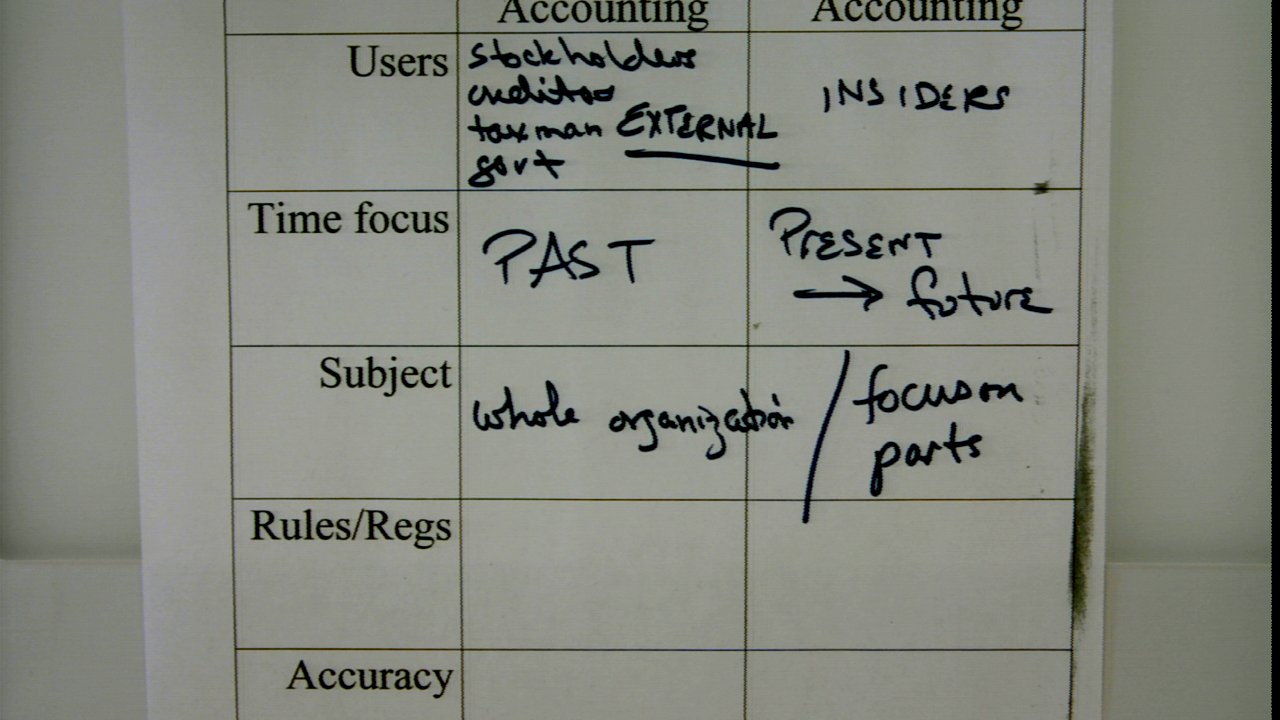 Accounting Accounting
Users
stockholders
creditors
taxman EXTERNAL
govt
INSIDERS
Time focus
PAST
PRESENT
→ future
Subject
whole organization / focus on
parts
Rules/Regs
Accuracy